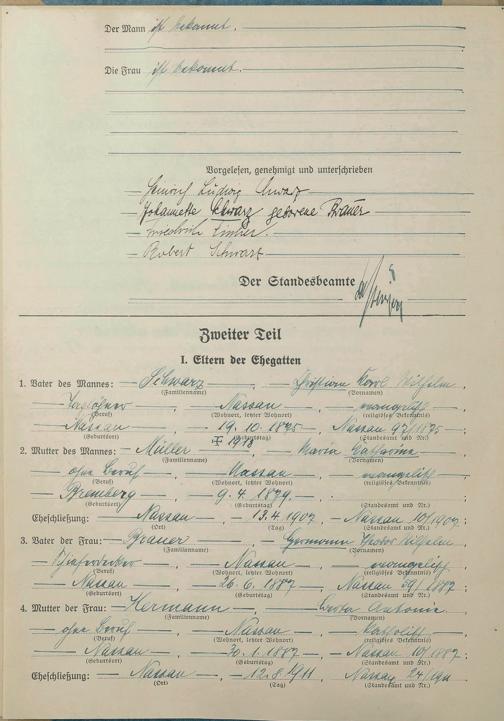 Der Mann ist bekannt.
Die Frau ist bekannt.
Vorgelesen, genehmigt und unterschrieben
Heinrich Ludwig Schwarz
Johannette Schwarz geborene Brauer
Robert Schwarz
Der Standesbeamte
Zweiter Teil
I. Eltern der Ehegatten
1. Vater des Mannes: Schwarz, Christian Karl Wilhelm,
(Familienname) (Vornamen)
Taglöhner, Nassau, evangelisch
(Beruf) (Wohnort, letzter Wohnort) (religiöses Bekenntnis)
Nassau, 19.10.1875, Nassau 97/1875
(Geburtsort) (Geburtstag) (Standesamt und Nr.)
2. Mutter des Mannes: Müller, Maria Katharina
(Familienname) (Vornamen)
ohne Beruf, Nassau, evangelisch
(Beruf) (Wohnort, letzter Wohnort) (religiöses Bekenntnis)
Bremberg, 9.4.1879,
(Geburtsort) (Geburtstag) (Standesamt und Nr.)
Eheschließung: Nassau, 13.4.1907, Nassau 10/1907
(Ort) (Tag) (Standesamt und Nr.)
3. Vater der Frau: Brauer, Hermann Wilhelm
(Familienname) (Vornamen)
Nassau, evangelisch
(Beruf) (Wohnort, letzter Wohnort) (religiöses Bekenntnis)
Nassau, 26.6.1887, Nassau 39/1887
(Geburtsort) (Geburtstag) (Standesamt und Nr.)
4. Mutter der Frau: Hermann, Antonie
(Familienname) (Vornamen)
ohne Beruf, Nassau, katholisch
(Beruf) (Wohnort, letzter Wohnort) (religiöses Bekenntnis)
Nassau, 30.1.1887, Nassau 10/1887;
(Geburtsort) (Geburtstag) (Standesamt und Nr.)
Eheschließung: Nassau, 12.8.1911, Nassau
(Ort) (Tag) (Standesamt und Nr.)